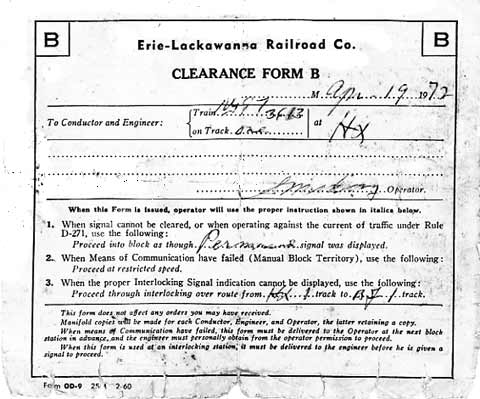 B Erie-Lackawanna Railroad Co. B
CLEARANCE FORM B
M. Apr. 19 1972
Train 3613
To Conductor and Engineer: at HX
on Track One
Operator.
When this Form is issued, operator will use the proper instruction shown in italics below.
1. When signal cannot be cleared, or when operating against the current of traffic under Rule
D-271, use the following:
Proceed into block as though signal was displayed.
2. When Means of Communication have failed (Manual Block Territory), use the following:
Proceed at restricted speed.
3. When the proper Interlocking Signal indication cannot be displayed, use the following:
Proceed through interlocking over route from HX 1 track to BJ 1 track.
This form does not affect any orders you may have received.
Manifold copies will be made for each Conductor, Engineer, and Operator, the latter retaining a copy.
When means of Communication have failed, this form must be delivered to the Operator at the next block
station in advance, and the engineer must personally obtain from the operator permission to proceed.
When this form is used at an interlocking station, it must be delivered to the engineer before he is given a
signal to proceed.
Form OD-9 25M 2-60